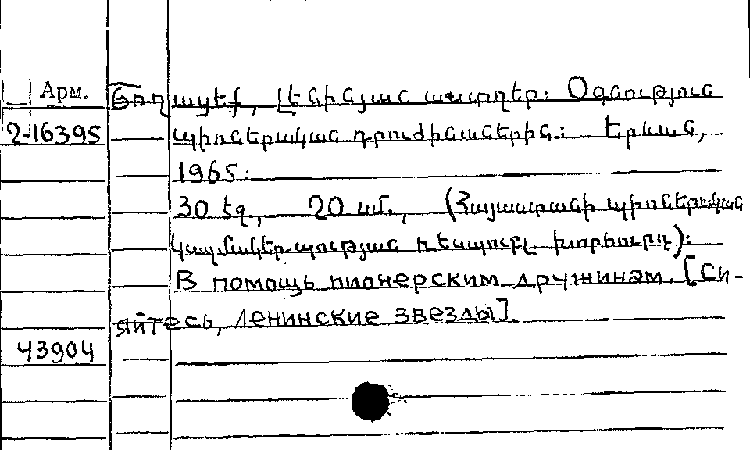 Арм. Շողացեք, լենինյան աստղեր: Օգնություն
2-16395 պիոներական դրուժինաներին: Երևան,
1965.
30 էջ, 20 սմ., (Հայաստանի պիոներական
կազմակերպության ռեսպուբլ. խորհուրդ):
В помощь пионерским дружинам. [Си-
яйтесь, Ленинские звезды].
43904